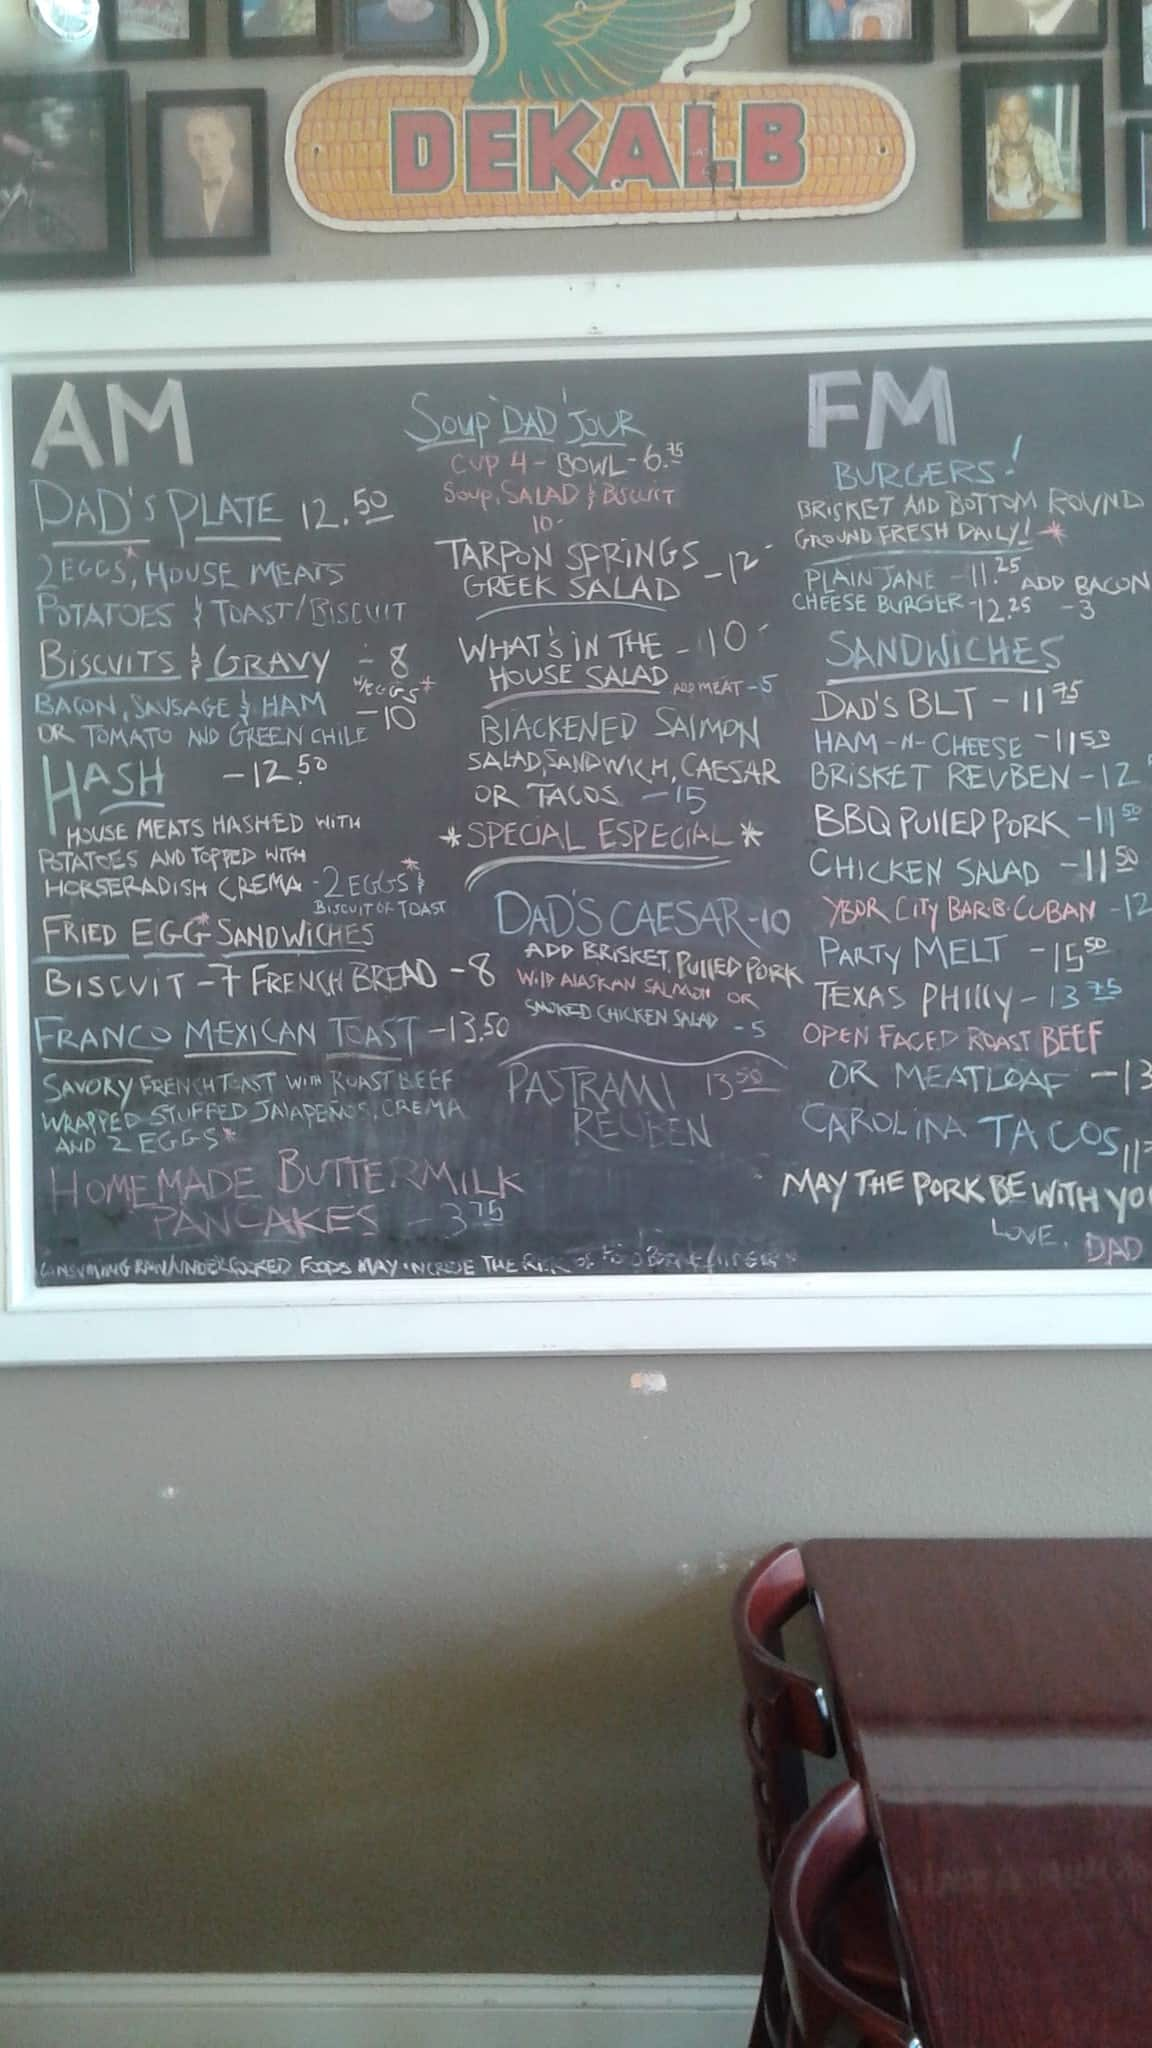 DEKALB
AM
DAD'S PLATE 12.50
2 EGGS*, HOUSE MEATS
POTATOES & TOAST/BISCUIT
BISCUITS & GRAVY - 8
W/EGGS*
BACON, SAUSAGE & HAM - 10
OR TOMATO AND GREEN CHILE
HASH - 12.50
HOUSE MEATS HASHED WITH
POTATOES AND TOPPED WITH
HORSERADISH CREMA - 2 EGGS* &
BISCUIT OR TOAST
FRIED EGG* SANDWICHES
BISCUIT - 7 FRENCH BREAD - 8
FRANCO MEXICAN TOAST - 13.50
SAVORY FRENCH TOAST WITH ROAST BEEF
WRAPPED STUFFED JALAPEÑOS, CREMA
AND 2 EGGS*
HOMEMADE BUTTERMILK
PANCAKES - 3.75
CONSUMING RAW/UNDERCOOKED FOODS MAY INCREASE THE RISK OF
SOUP 'DAD' JOUR
CUP 4 - BOWL - 6.75
SOUP, SALAD & BISCUIT
10-
TARPON SPRINGS
GREEK SALAD - 12-
WHAT'S IN THE - 10-
HOUSE SALAD ADD MEAT - 5
BLACKENED SALMON
SALAD, SANDWICH, CAESAR
OR TACOS - 15
*SPECIAL ESPECIAL*
DAD'S CAESAR - 10
ADD BRISKET, PULLED PORK
WILD ALASKAN SALMON OR
SMOKED CHICKEN SALAD - 5
PASTRAMI 13.50
REUBEN
FM
BURGERS!
BRISKET AND BOTTOM ROUND
GROUND FRESH DAILY! *
PLAIN JANE - 11.25 ADD BACON
CHEESE BURGER - 12.25 - 3
SANDWICHES
DAD'S BLT - 11.75
HAM-N-CHEESE - 11.50
BRISKET REUBEN - 12
BBQ PULLED PORK - 11.50
CHICKEN SALAD - 11.50
YBOR CITY BAR-B-CUBAN - 12
PARTY MELT - 15.50
TEXAS PHILLY - 13.75
OPEN FACED ROAST BEEF
OR MEATLOAF - 13
CAROLINA TACOS 11
MAY THE PORK BE WITH YO
LOVE, DAD